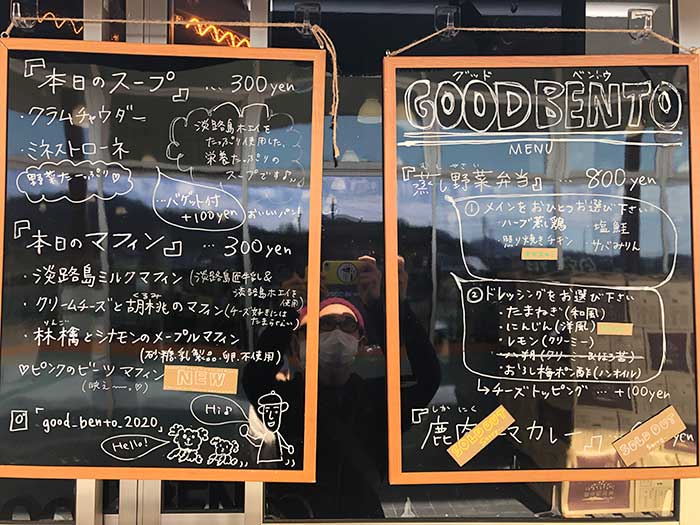 『本日のスープ』 … 300yen
・クラムチャウダー
・ミネストローネ
野菜たーっぷり♡
淡路島ホエイを
たっぷり使用した、
栄養たっぷりの
スープです♪
…バゲット付
+100yen
おいしいパン!
『本日のマフィン』 … 300yen
・淡路島ミルクマフィン (淡路島産牛乳&
淡路島ホエイ使用)
・クリームチーズと胡桃のマフィン (チーズ好きには
くるみ
たまらない)
りんご
・林檎とシナモンのメープルマフィン
(砂糖.乳製品.卵.不使用)
♡ピンクのビーツマフィン NEW
(映え〜。♡)
「good_bento_2020」
Hi♪
Hello!
グッド ベントウ
GOOD BENTO
MENU
む やさい
『蒸し野菜弁当』 … 800yen
① メインをおひとつお選び下さい
・ハーブ蒸し鶏 ・塩鮭
・照り焼きチキン ・サバみりん
② ドレッシングをお選び下さい
・たまねぎ(和風)
・にんじん(洋風)
・レモン(クリーミー)
・おろし梅ポン酢(ノンオイル)
→チーズトッピング … +100yen
しか にく
『鹿肉 マカレー』 yen
SOLD OUT
SOLD OUT